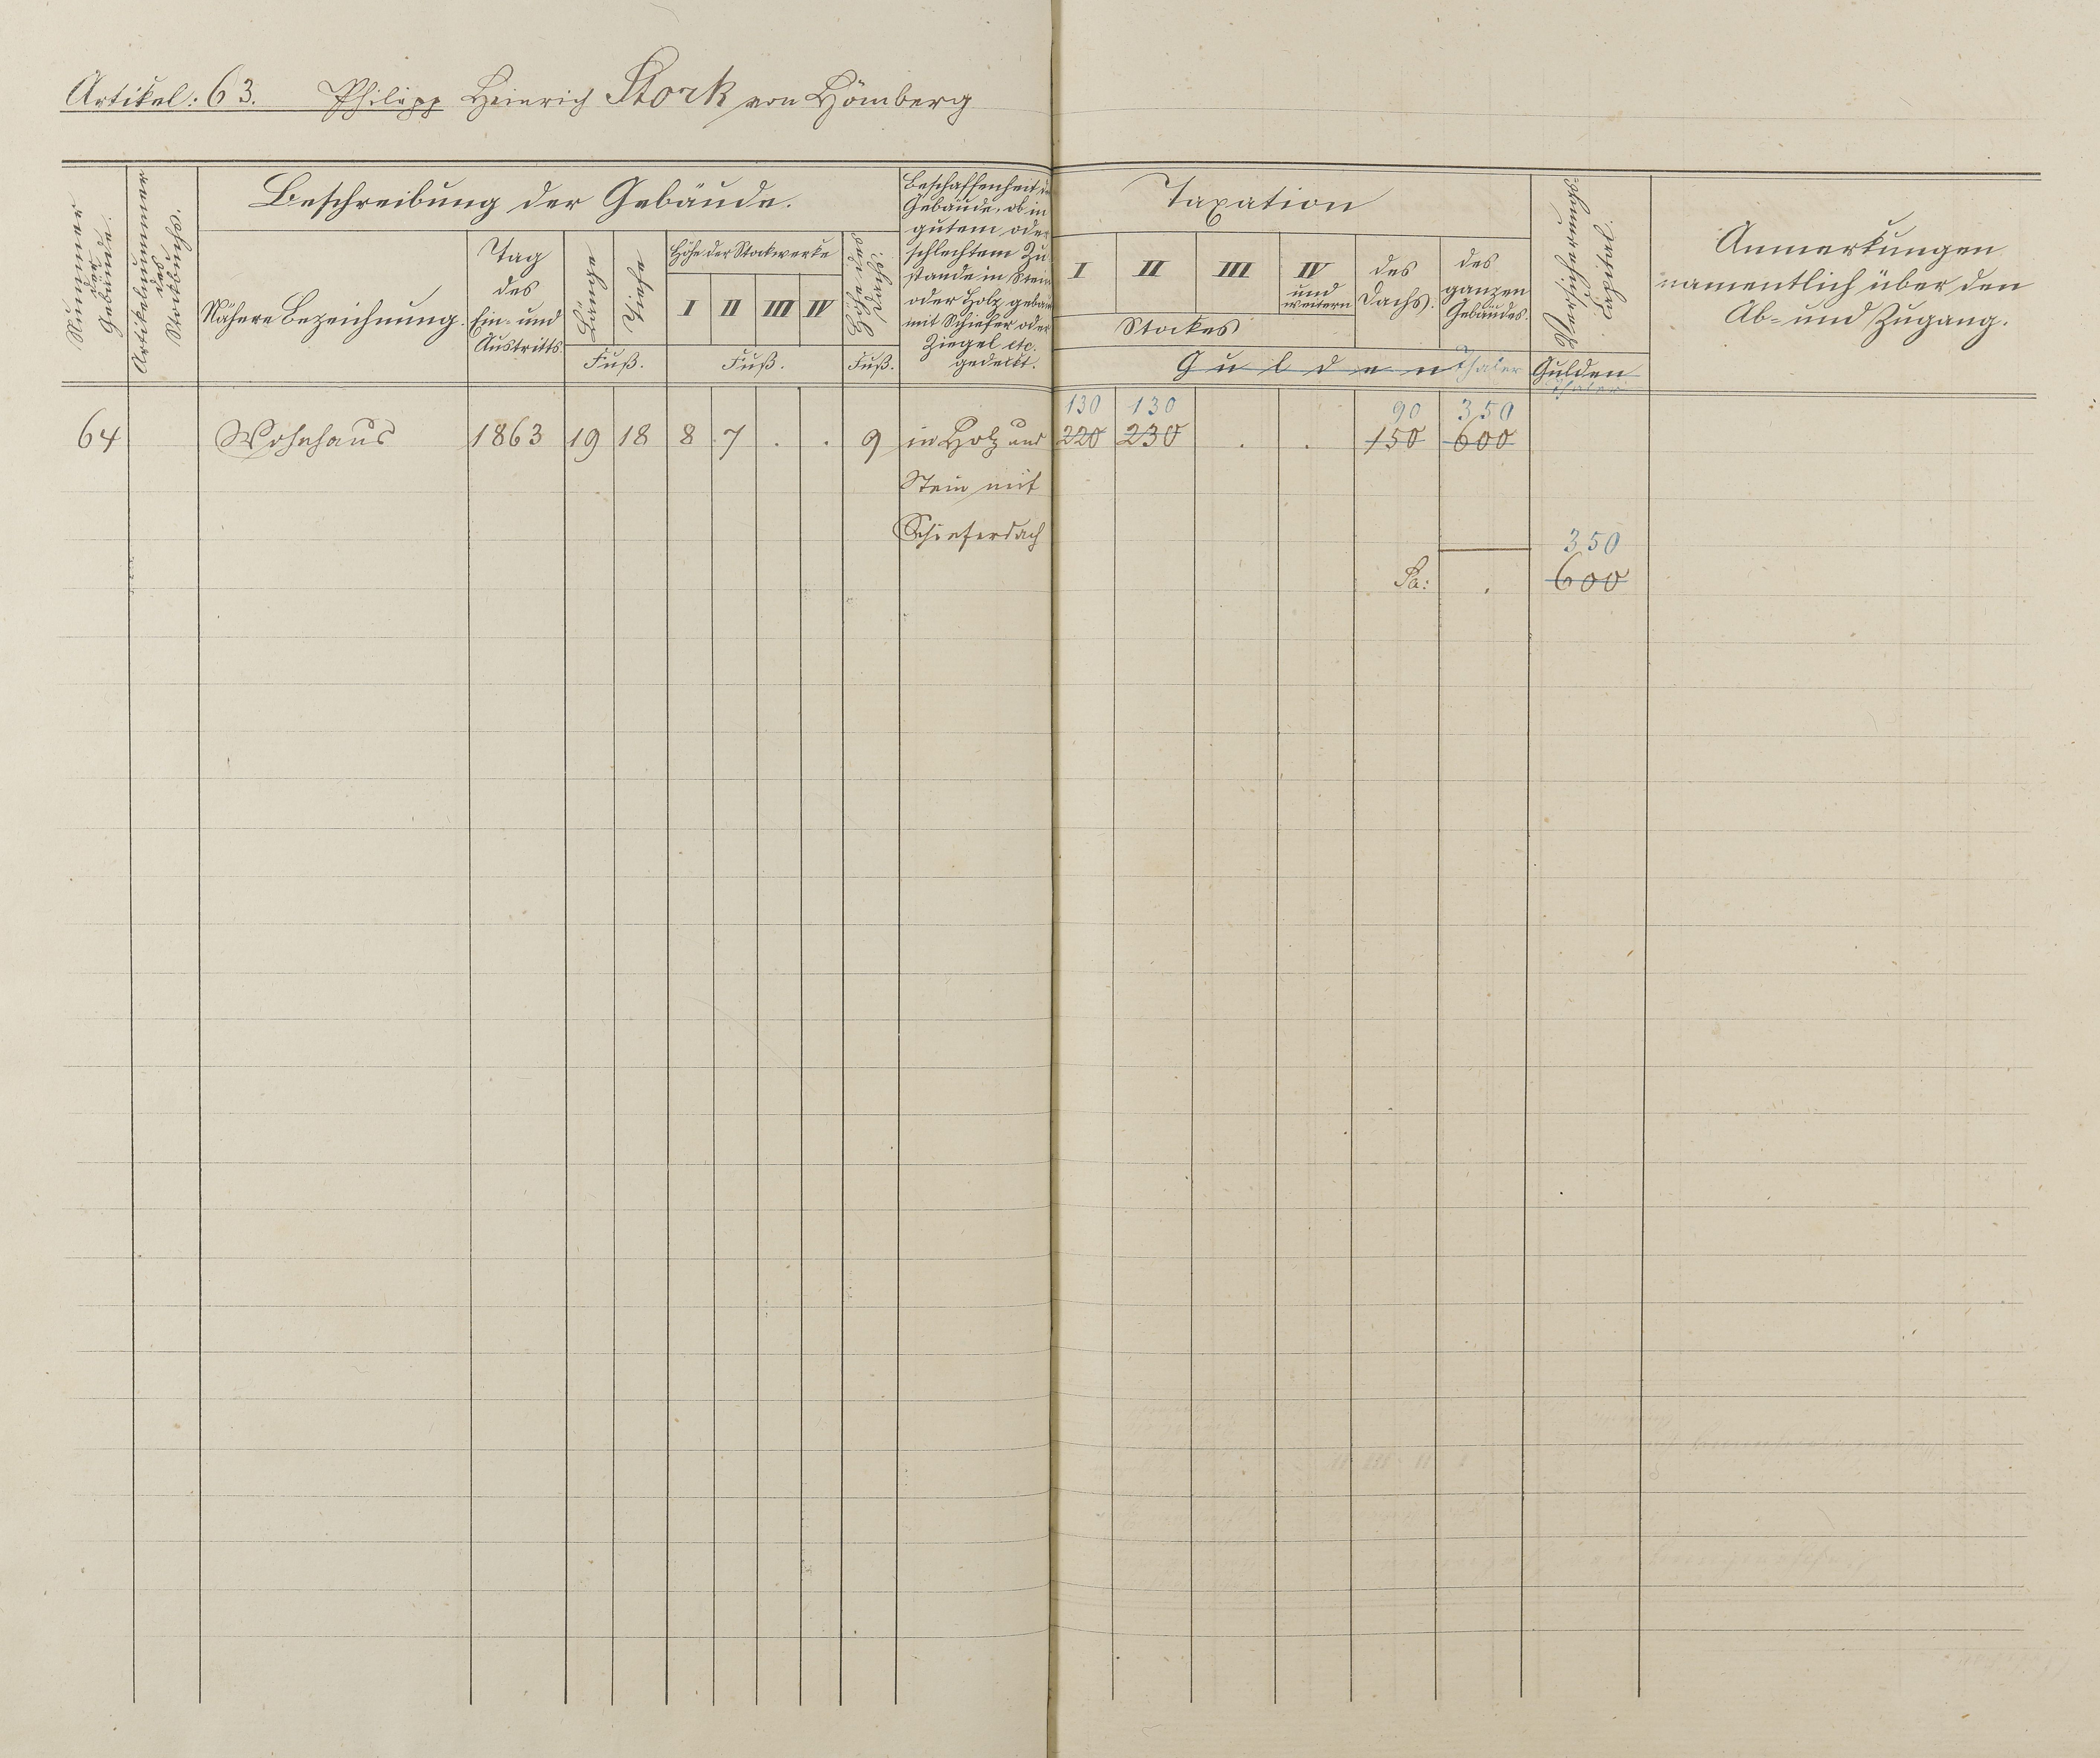 Artikel: 63. Philipp Heinrich Stork von Hömberg
Nummer der Gebäude.
Artikelnummer des Stockbuchs.
Beschreibung der Gebäude.
Nähere Bezeichnung.
Tag des Ein- und Austritts
Länge
Tiefe
Fuß.
Höhe der Stockwerke
I II III IV
Fuß.
Höhe des Dachs.
Fuß.
Beschaffenheit der
Gebäude, ob in
gutem oder
schlechtem Zu-
stande in Stein
oder Holz gebaut
mit Schiefer oder
Ziegel etc.
gedeckt.
Taxation
I II III IV und weitern
Stockes
des Dachs.
des ganzen Gebäudes.
Gulden Thaler
Versicherungs-
Capital.
Gulden
Thaler
Anmerkungen
namentlich über den
Ab- und Zugang.
130 130 90 350
64 Wohnhaus 1863 19 18 8 7 . . 9 in Holz und 220 230 . . 150 600
Stein mit
Schieferdach
350
Sa: . 600